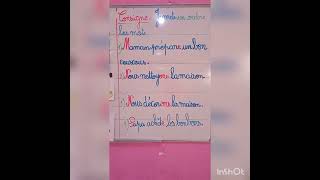 Consigne: Je mets en ordre
les mots
1) Maman prépare un bon
couscous.
2) Nous nettoyons la maison.
3) Nous décorons la maison.
4) Papa achète les bonbons.
InShOt